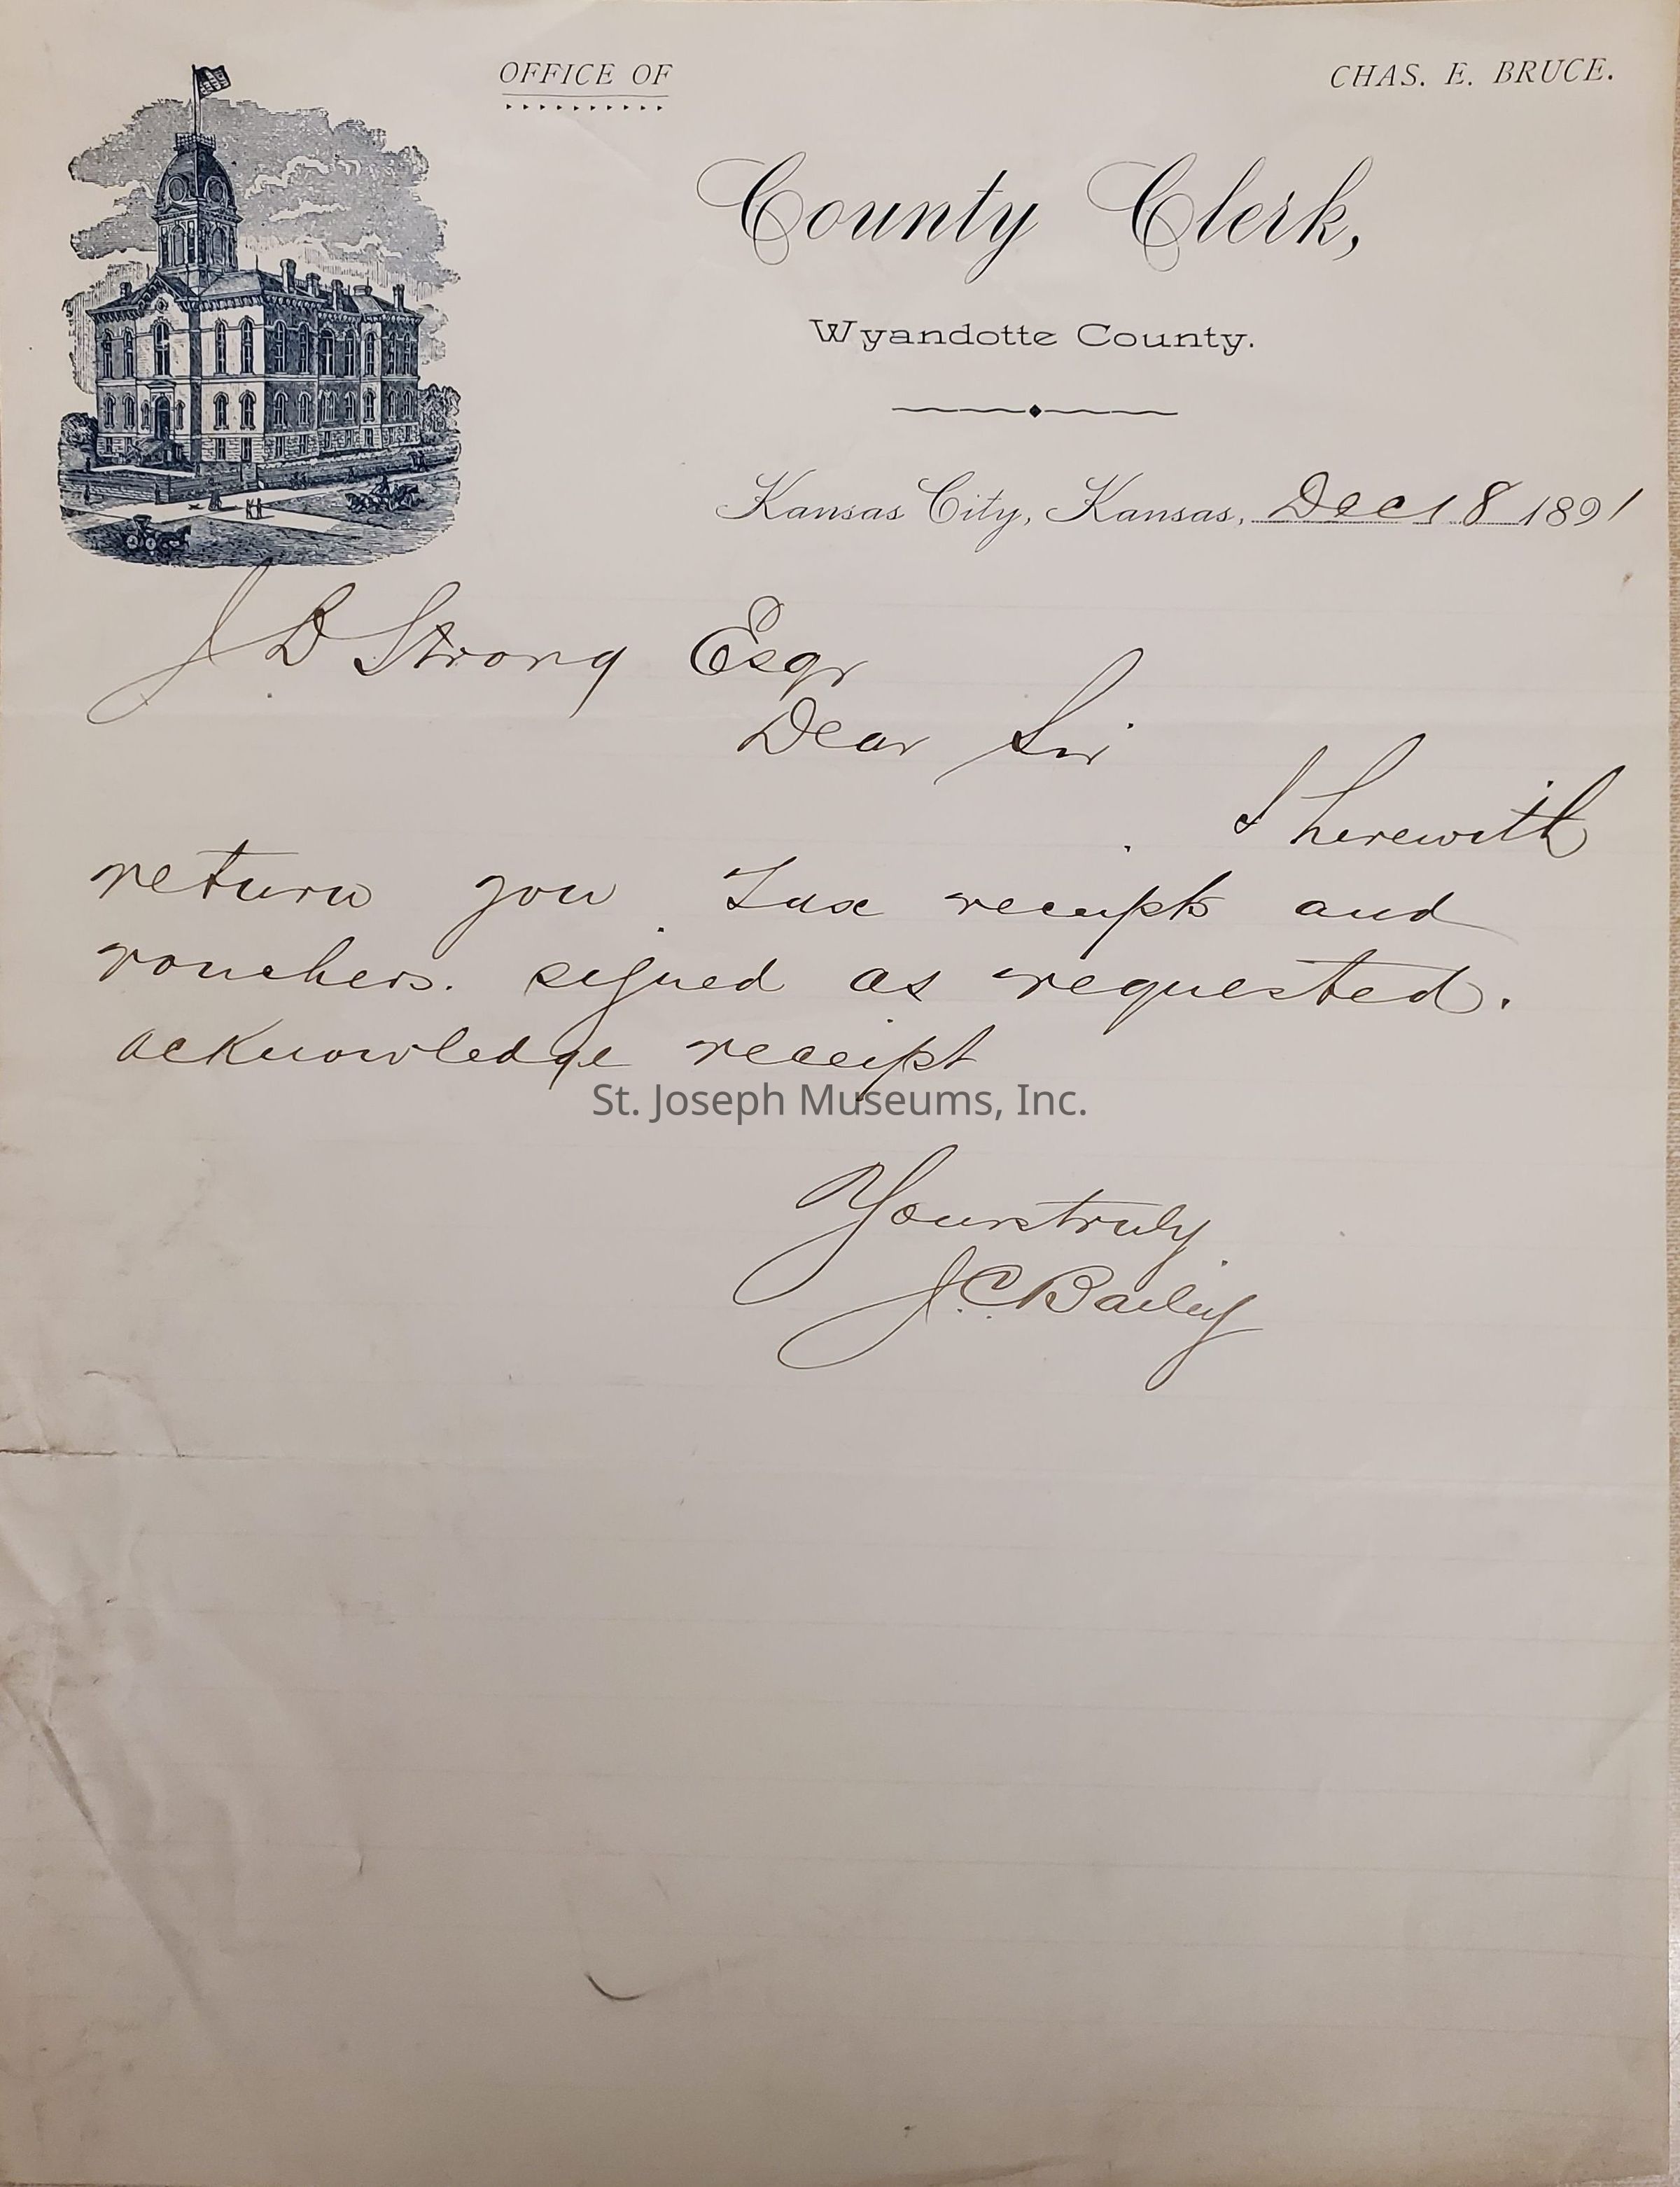 OFFICE OF
CHAS. E. BRUCE.
County Clerk,
Wyandotte County.
Kansas City, Kansas, Dec 18 1891
J D Strong Esqr
Dear Sir
I herewith
return you Tax receipts and
vouchers. signed as requested.
acknowledge receipt
St. Joseph Museums, Inc.
Yours truly
J. C. Bailey